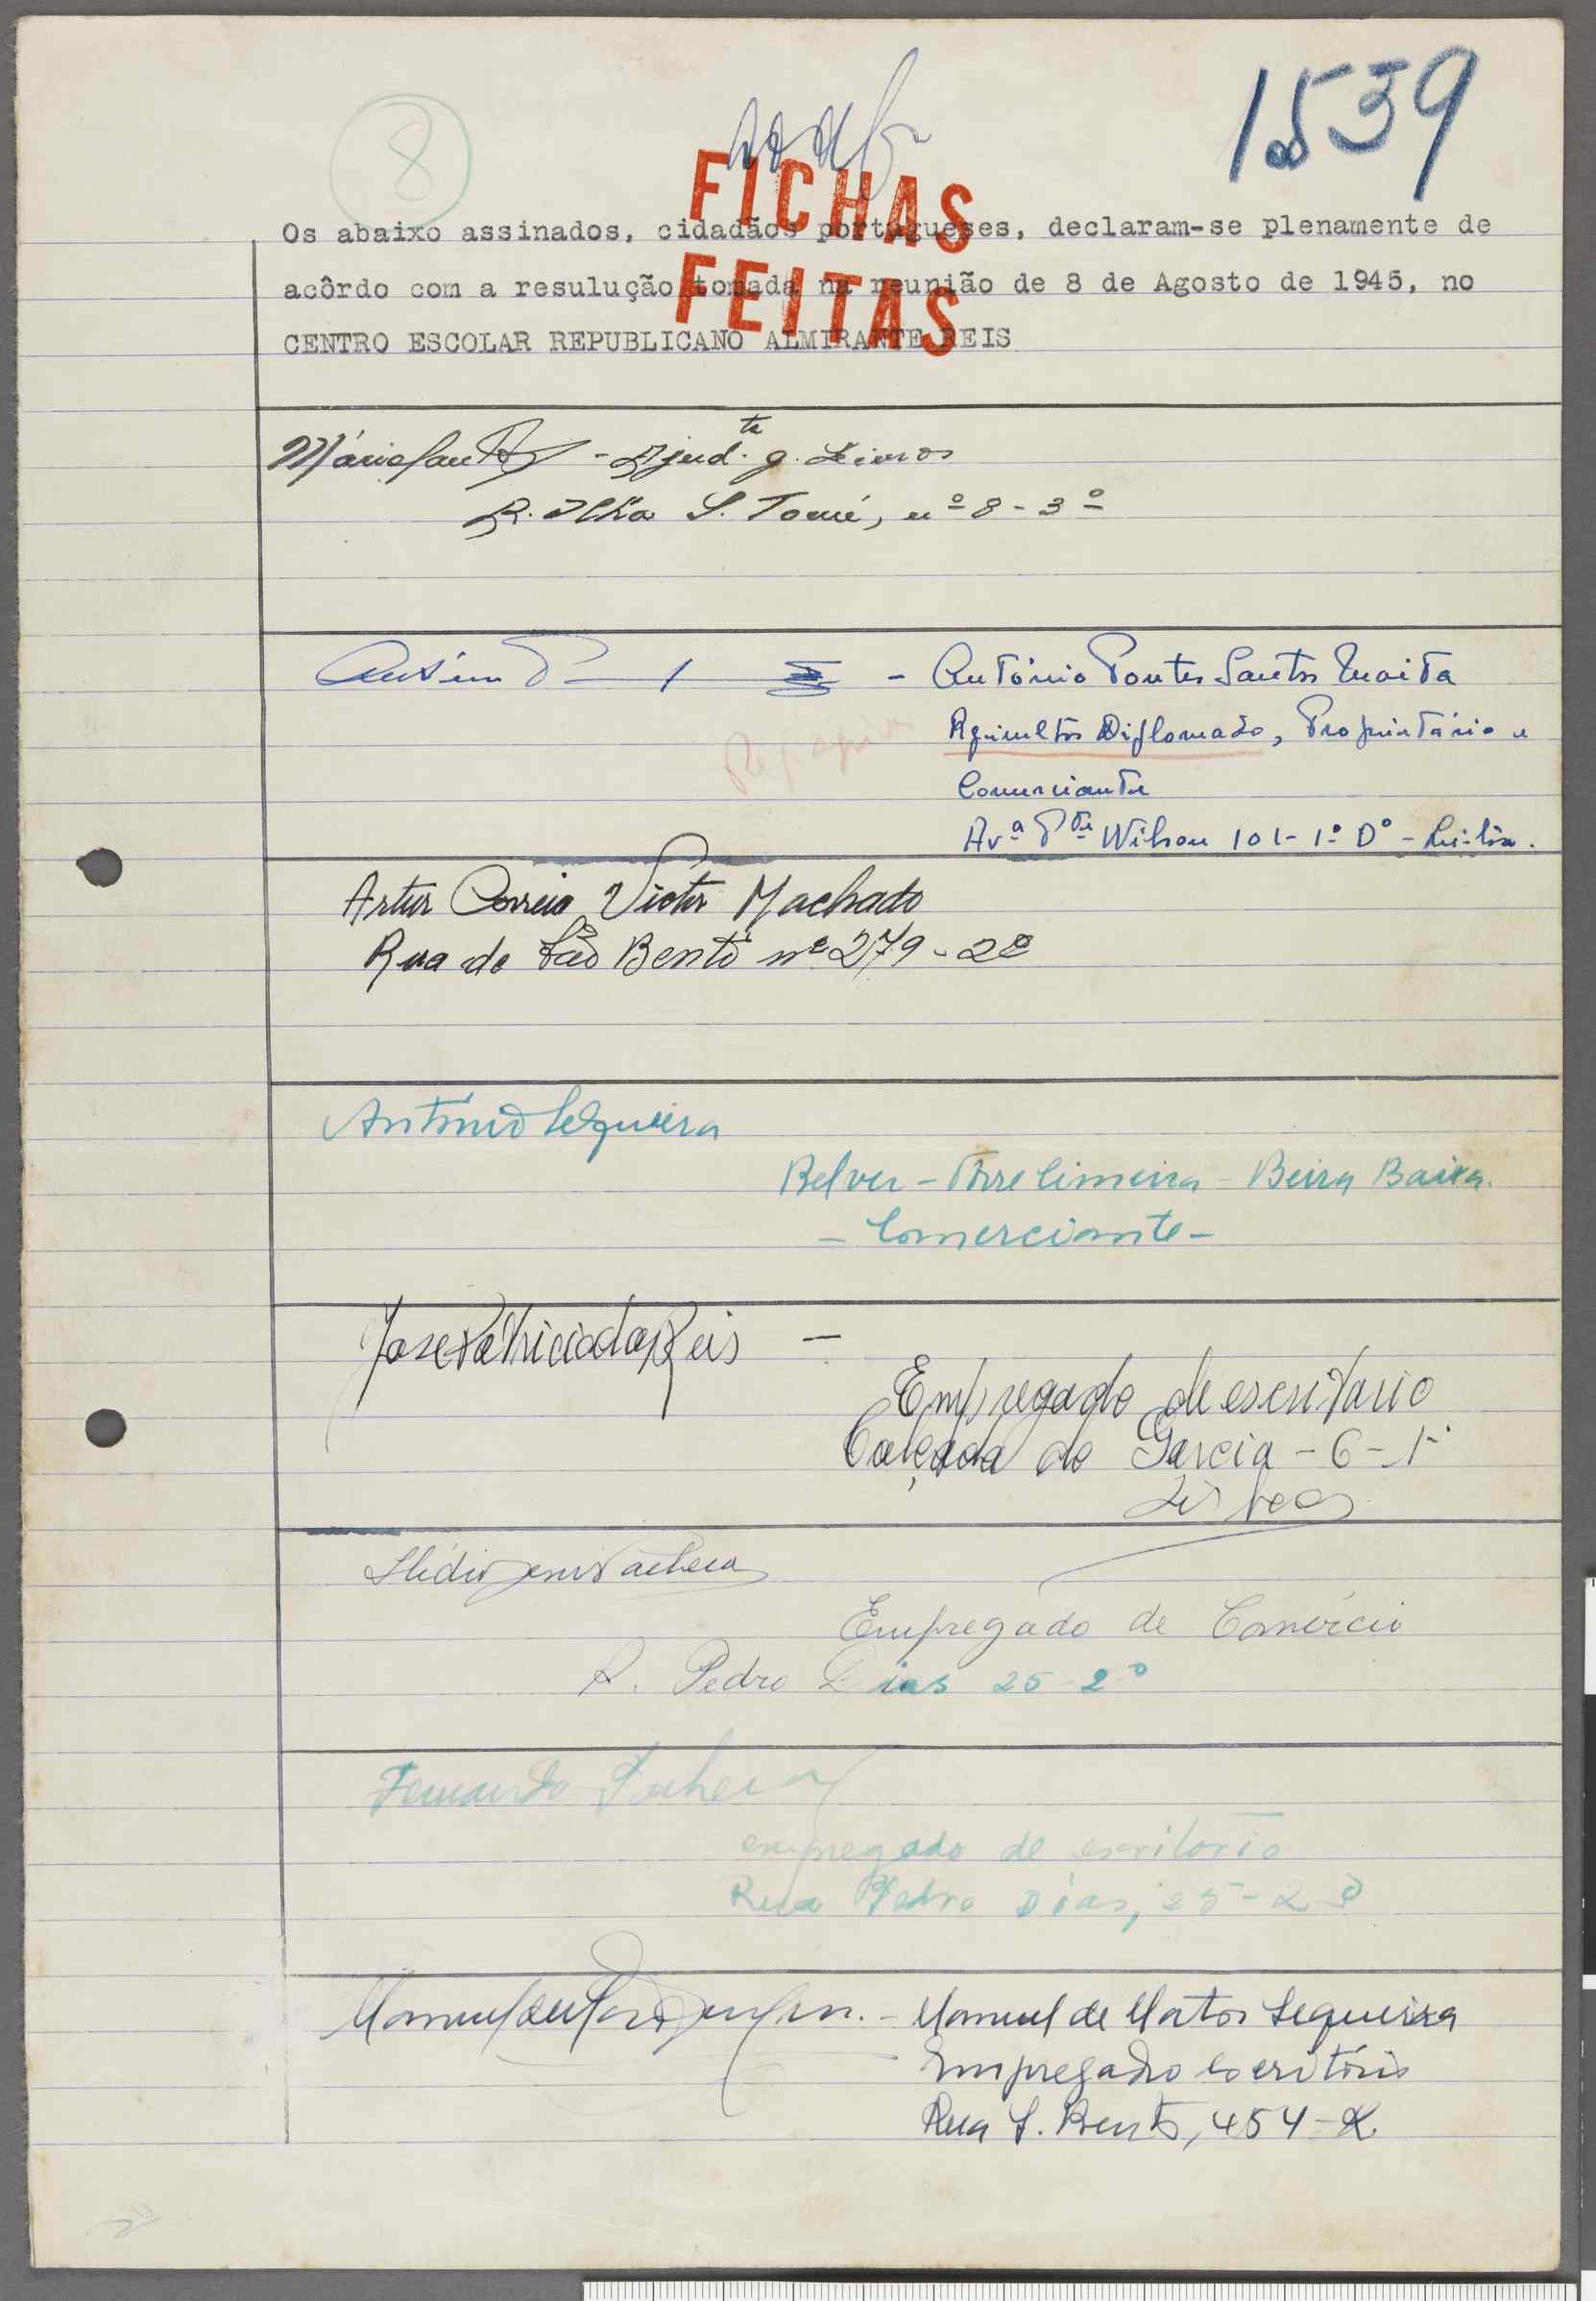 8
1539
FICHAS
FEITAS
Os abaixo assinados, cidadãos portugueses, declaram-se plenamente de
acôrdo com a resulução tomada na reunião de 8 de Agosto de 1945, no
CENTRO ESCOLAR REPUBLICANO ALMIRANTE REIS
Mário - Ajud.te g. Livros
R. Ilha S. Tomé, nº 8 - 3º
- António Pontes Santos Maita
Agricultor Diplomado, Proprietário e
Comerciante
Av.ª P.te Wilson 101-1º Dº - Lisboa.
Artur Correia Victor Machado
Rua de São Bento nº 279 - 2º
António Sequeira
Belver - Torre Cimeira - Beira Baixa.
- Comerciante -
José Patricio dos Reis -
Empregado de escritario
Calçada do Garcia - 6 - 1º
Lisboa
Ilídio Pacheco
Empregado de Comércio
R. Pedro Dias 25-2º
Fernando Pacheco
empregado de escritorio
Rua Pedro Dias, 25-2º
- Manuel de Matos Sequeira
Empregado Escritório
Rua S. Bento, 454-